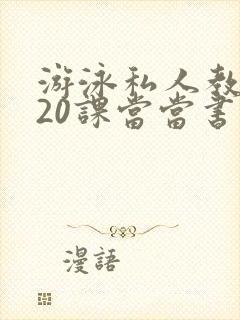 游泳私人教
20課當當書
漫語